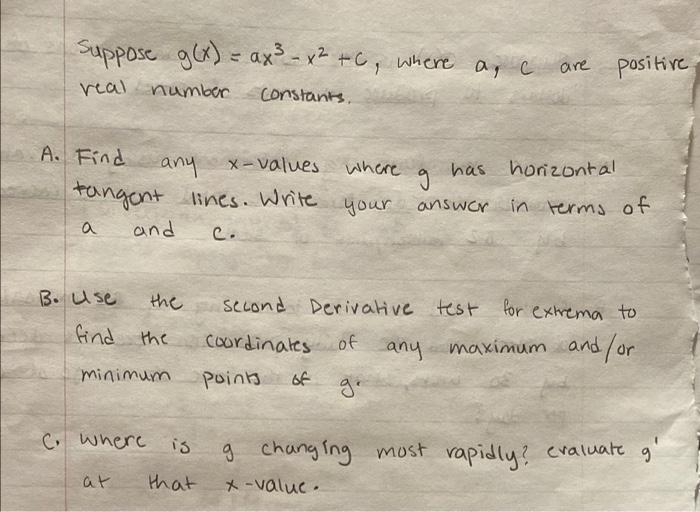 Suppose g(x) = ax³ - x² + c, where a, c are positive
real number constants.
A. Find any x-values where g has horizontal
tangent lines. Write your answer in terms of
a and c.
B. Use the second Derivative test for extrema to
find the coordinates of any maximum and/or
minimum points of g.
C. Where is g changing most rapidly? evaluate g'
at that x-value.